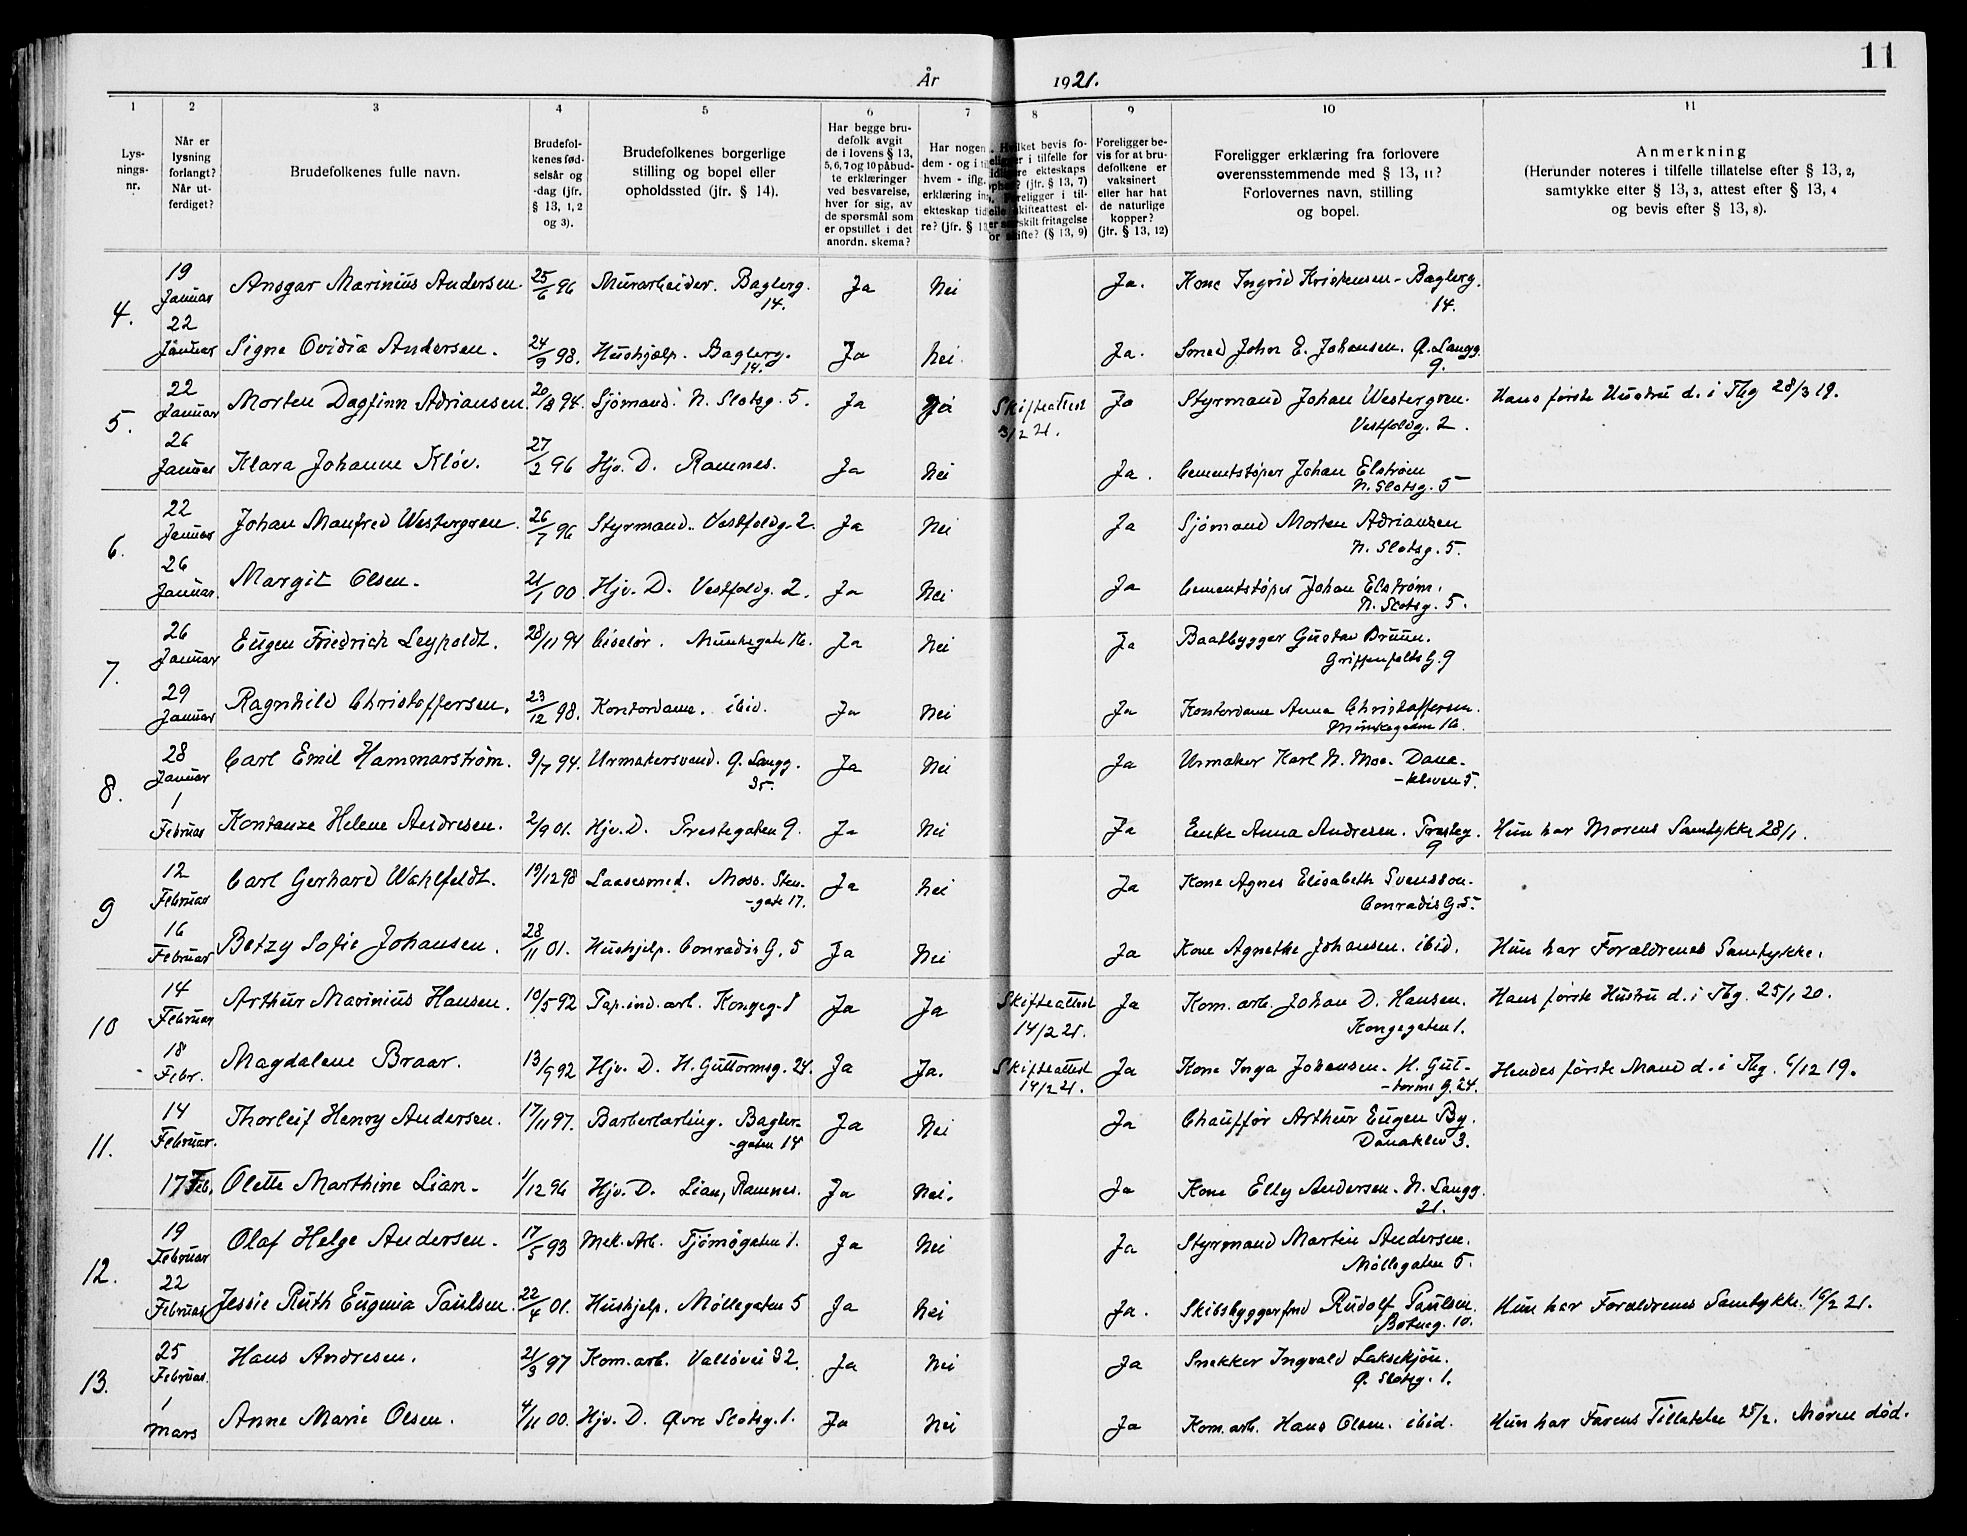 11
År 1921.
1 2 3 4 5 6 7 8 9 10 11
Lysningsnr.
Når er lysning forlangt? Når utferdiget?
Brudefolkenes fulle navn.
Brudefolkenes fødselsår og -dag (jfr. § 13, 1, 2 og 3).
Brudefolkenes borgerlige stilling og bopel eller opholdssted (jfr. § 14).
Har begge brudefolk avgit de i lovens § 13, 5, 6, 7 og 10 påbudte erklæringer ved besvarelse, hver for sig, av de spørsmål som er opstillet i det anordn. skema?
Har nogen
dem - og i
hvem - iflg.
erklæring
ekteskap
re? (jfr. §
bevis fo-
i tilfelle for
ekteskaps
(jfr. § 13, 7)
i til-
skifteattest el-
fritagelse
skifte? (§ 13, 9)
Foreligger bevis for at brudefolkene er vaksinert eller har hat de naturlige kopper? (jfr. § 13, 12)
Foreligger erklæring fra forlovere overensstemmende med § 13, 11? Forlovernes navn, stilling og bopel.
Anmerkning
(Herunder noteres i tilfelle tillatelse efter § 13, 2, samtykke etter § 13, 3, attest efter § 13, 4 og bevis efter § 13, 8).
4. 19 Januar Ansgar Marinius Andersen. 25/6 96 Murarbeider. Baglerg. 14. Ja Nei Ja. Kone Ingrid Kristensen - Baglerg. 14.
22 Januar Signe Ovidia Andersen. 24/9 98. Hushjælp. Baglerg. 14. Ja Nei Ja. Smed John E. Johansen. Ø. Langg. 9.
5. 22 Januar Morten Dagfinn Adriansen. 20/8 94. Sjömand. N. Slotsg. 5. Ja Ja Skifteattest 3/2 21. Ja Styrmand Johan Westergren. Vestfoldg. 2. Hans første Hustru d. i Tbg 28/3 19.
26 Januar Klara Johanne Kløv. 27/2 96 Hjv. D. Ramnes. Ja Nei Ja. Cementstøper Johan Elstrøm N. Slotsg. 5
6. 22 Januar Johan Manfred Westergren. 26/7 96 Styrmand. Vestfoldg. 2. Ja Nei Ja Sjömand Morten Adriansen N. Slotsg. 5.
26 Januar Margit Olsen. 21/1 00 Hjv. D. Vestfoldg. 2. Ja Nei Ja Cementstøper Johan Elstrøm. N. Slotsg. 5.
7. 26 Januar Eugen Friedrich Leypoldt. 28/11 94 Ciselør. Munkegate 16. Ja Nei Ja Baatbygger Gustav Bruun. Griffenfelts G. 9
29 Januar Ragnhild Christoffersen. 23/12 98. Kontordame. ibid. Ja Nei Ja Kontordame Anna Christoffersen. Munkegaten 16.
8. 28 Januar Carl Emil Hammarstrøm. 9/7 94. Urmakersvend. Ø. Langg. 35. Ja Nei Ja Urmaker Karl N. Moe. Dana-kleven 5.
1 Februar Kontanze Helene Andresen. 2/9 01. Hjv. D. Prestegaten 9. Ja Nei Ja Enke Anna Andresen. Presteg. 9 Hun har Morens Samtykke 28/1.
9 12 Februar Carl Gerhard Wahlfeldt. 19/12 98 Laasesmed. Moss. Sten-gate 17. Ja Nei Ja Kone Agnes Elisabeth Svensson. Conradis G. 5.
16 Februar Betzy Sofie Johansen. 28/11 01. Hushjelp. Conradis G. 5 Ja Nei Ja Kone Agnethe Johansen. ibid. Hun har Forældrenes Samtykke.
10 14 Februar Arthur Marinius Hansen. 10/5 92 Pap. ind. arb. Kongeg. 1 Ja Ja Skifteattest 14/2 21. Ja Kom. arb. Johan D. Hansen. Kongegaten 1. Hans første Hustru d. i Tbg. 25/1 20.
18 Febr. Magdalene Braar. 13/9 92 Hjv. D. H. Guttormsg. 24. Ja Ja. Skifteattest 14/2 21. Ja Kone Inga Johansen. H. Gut-torms G. 24. Hendes første Mand d. i Tbg. 6/12 19.
11. 14 Februar. Thorleif Henry Andersen. 17/11 97. Barberlærling. Bagler-gaten 14 Ja Nei Ja Chauffør Arthur Eugen By. Danaklev 3.
17 Feb. Olette Marthine Lian. 1/12 96 Hjv. D. Lian, Ramnes. Ja Nei. Ja Kone Elly Andersen. N. Langg. 21.
12. 19 Februar Olaf Helge Andersen. 17/5 93 Mek. Arb. Tjömögaten 1. Ja Nei Ja Styrmand Martin Andersen. Møllegaten 5.
22 Februar Jessie Ruth Eugenia Paulsen. 22/4 01. Hushjelp. Møllegaten 5 Ja Nei Ja. Skibsbyggerfmd Rudolf Paulsen. 10. Hun har Forældrenes Samtykke. 16/2 21.
13. 25 Februar. Hans Andresen. 21/3 97 Kom. arb. Valløvei 32. Ja Nei Ja Snekker Ingvald Laksekjøn. Ø. Slotsg. 1.
1 Mars Anne Marie Olsen. 4/11 00. Hjv. D. Øvre Slotsg. 1. Ja Nei Ja Kom. arb. Hans Olsen. ibid. Hun har Farens Tillatelse 25/2. Moren død.